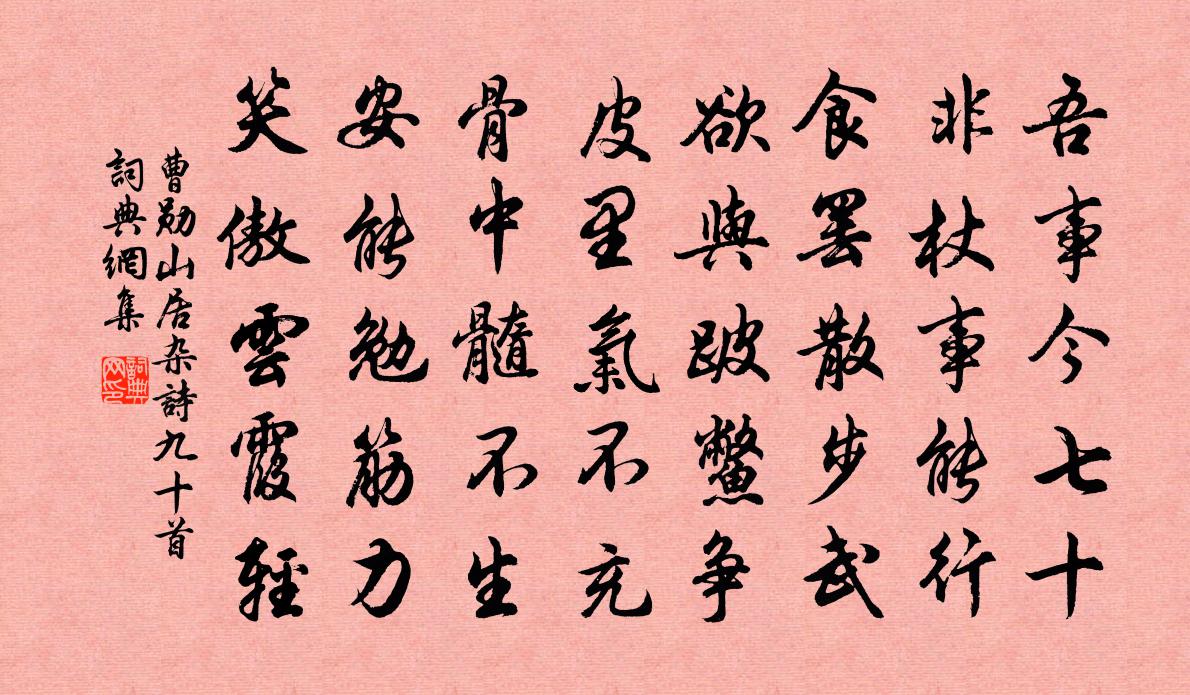 吾事今七十
非杖事能行
食罢散步武
欲與跛鱉争
皮里氣不充
骨中髓不生
安能勉筋力
笑傲雲霞輕
曹勛山居杂詩九十首
詞典網集
詞典网印